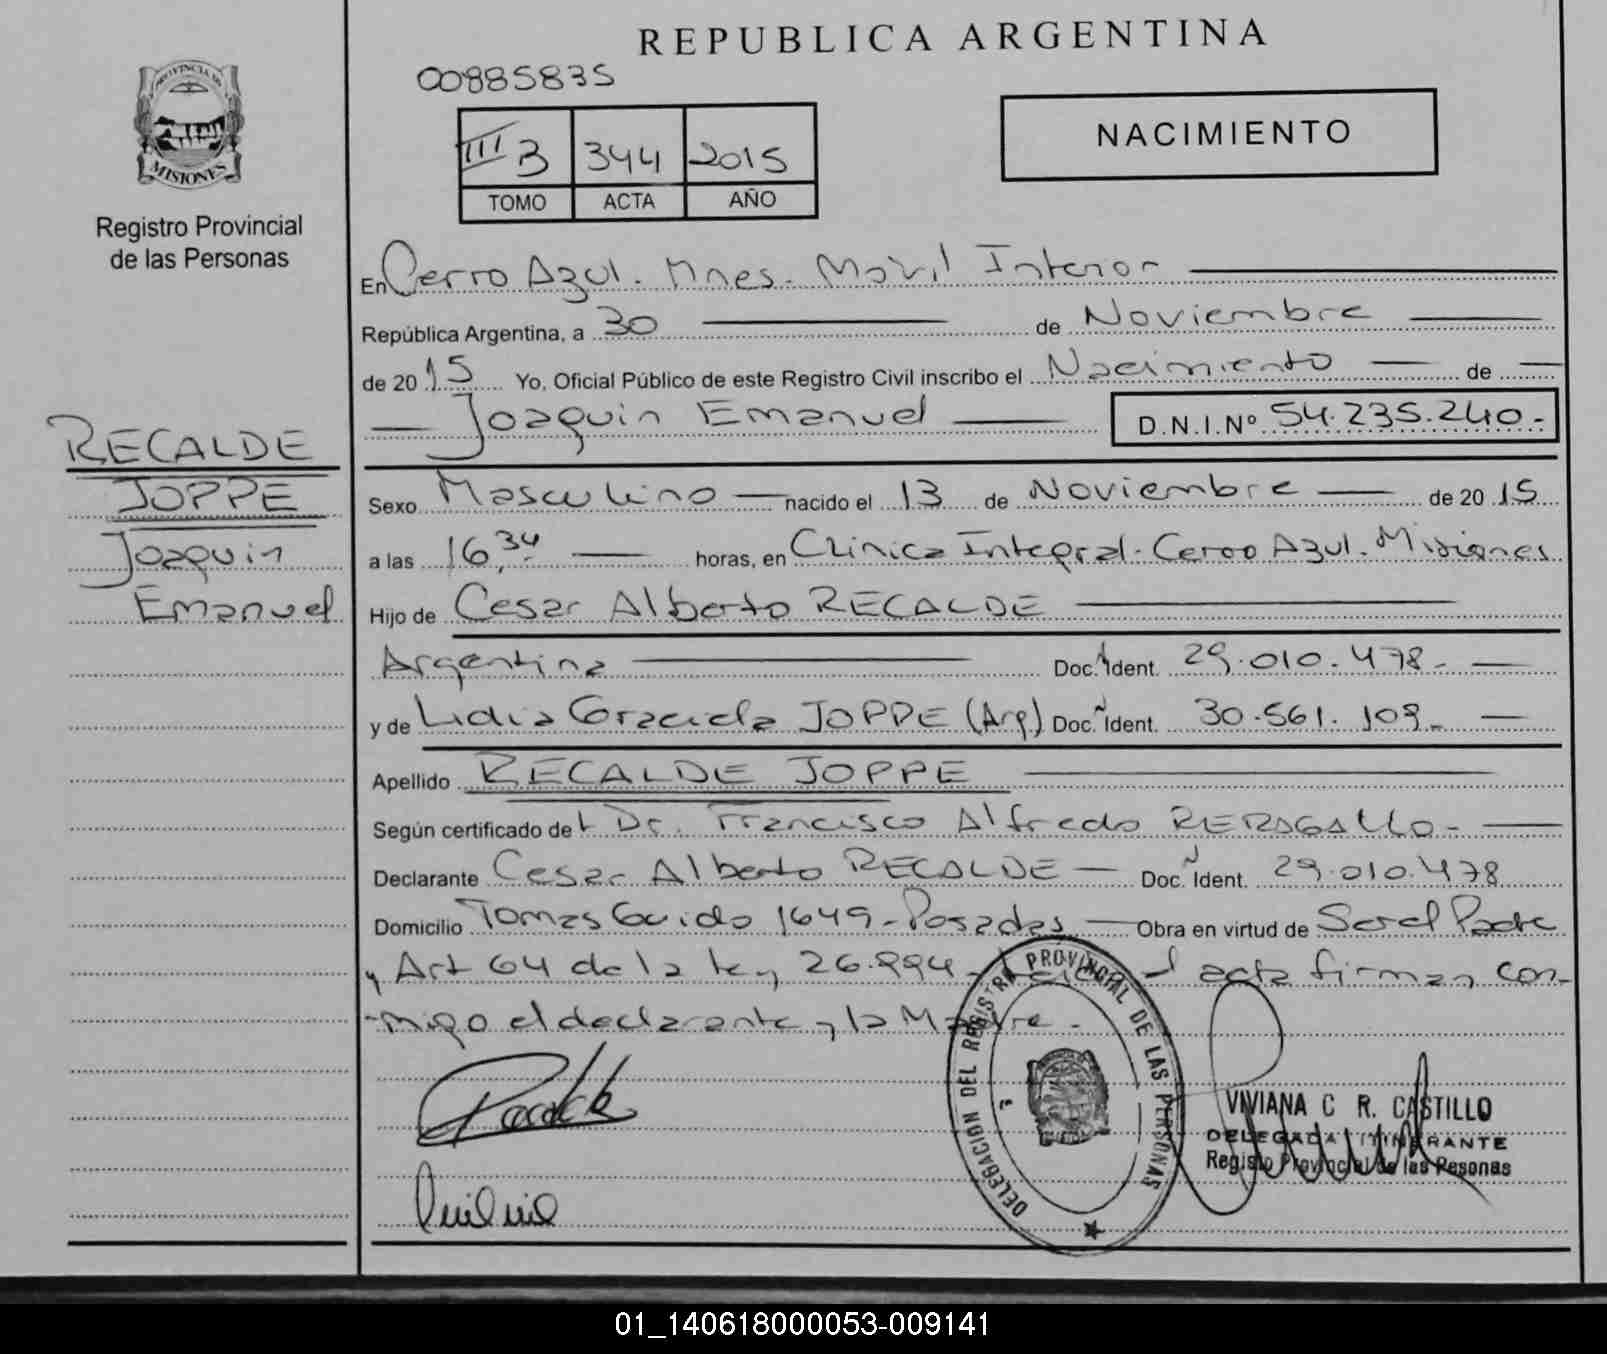 REPUBLICA ARGENTINA
00885835
PROVINCIA DE
MISIONES
Registro Provincial
de las Personas
III B 344 2015
TOMO ACTA AÑO
NACIMIENTO
En Cerro Azul. Mnes. Movil Interior
República Argentina, a 30 de Noviembre
de 2015 Yo, Oficial Público de este Registro Civil inscribo el Nacimiento de
Joaquin Emanuel D.N.I.Nº 54.235.240.-
RECALDE
JOPPE
Joaquin
Emanuel
Sexo Masculino nacido el 13 de Noviembre de 2015
a las 16,34 horas, en Clinica Integral. Cerro Azul. Misiones
Hijo de Cesar Alberto RECALDE
Argentina Doc. Ident. 29.010.478.-
y de Lidia Graciela JOPPE (Arg) Doc. Ident. 30.561.109.-
Apellido RECALDE JOPPE
Según certificado del Dr. Francisco Alfredo
Declarante Cesar Alberto RECALDE Doc. Ident. 29.010.478
Domicilio Tomas Guido 1649 - Posadas Obra en virtud de Ser el Padre
y Art 64 de la ley 26.994. el acta firman con-
migo el declarante y la Madre.
DELEGACION DEL REGISTRO PROVINCIAL DE LAS PERSONAS
VIVIANA C R. CASTILLO
DELEGADA ITINERANTE
Registo Provincial de las Pesonas
01_140618000053-009141